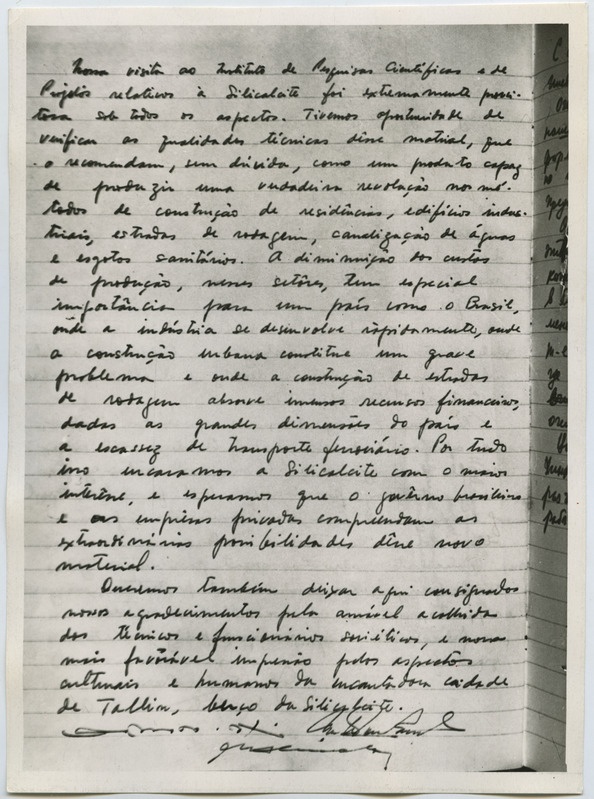 Nossa visita ao Instituto de Pesquisas Científicas e de
Projetos relativos à Silicalcite foi extremamente provei-
tosa sob todos os aspectos. Tivemos oportunidade de
verificar as qualidades técnicas dêsse material, que
o recomendam, sem dúvida, como um produto capaz
de produzir uma verdadeira revolução nos mé-
todos de construção de residências, edifícios indus-
triais, estradas de rodagem, canalização de águas
e esgotos sanitários. A diminuição dos custos
de produção, nesses setôres, tem especial
importância para um país como o Brasil,
onde a indústria se desenvolve ràpidamente, onde
a construção urbana constitue um grave
problema e onde a construção de estradas
de rodagem absorve imensos recursos financeiros,
dadas as grandes dimensões do país e
a escassez de transporte ferroviário. Por tudo
isso encaramos a Silicalcite com o maior
interêsse, e esperamos que o govêrno brasileiro
e as emprêsas privadas compreendam as
extraordinárias possibilidades dêsse novo
material.
Queremos também deixar aqui consignados
nossos agradecimentos pela amável acolhida
dos técnicos e funcionários soviéticos, e nossa
mais favorável impressão pelos aspectos
culturais e humanos da encantadora cidade
de Tallin, berço da Silicalcite.